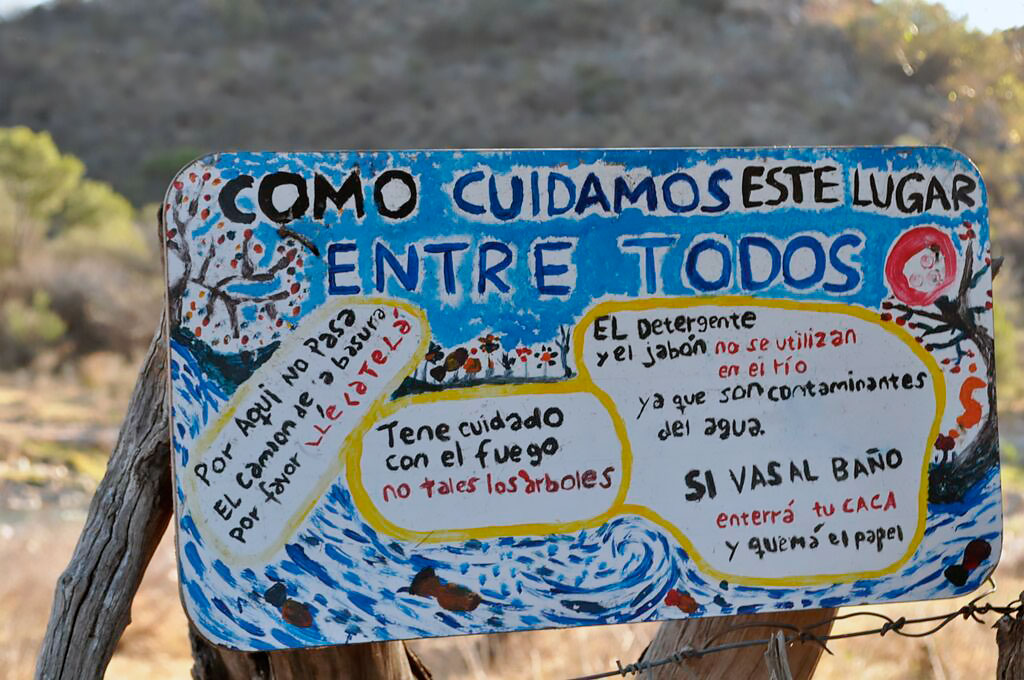 COMO CUIDAMOS ESTE LUGAR
ENTRE TODOS
Por AQUI NO PASA
EL CAMION DE la basura
por favor LLÉVATELÁ
Tene cuidado
con el fuego
no tales los árboles
EL Detergente
y el jabón no se utilizan
en el río
ya que son contaminantes
del agua.
SI VAS AL BAÑO
enterrá tu CACA
y quemá el papel